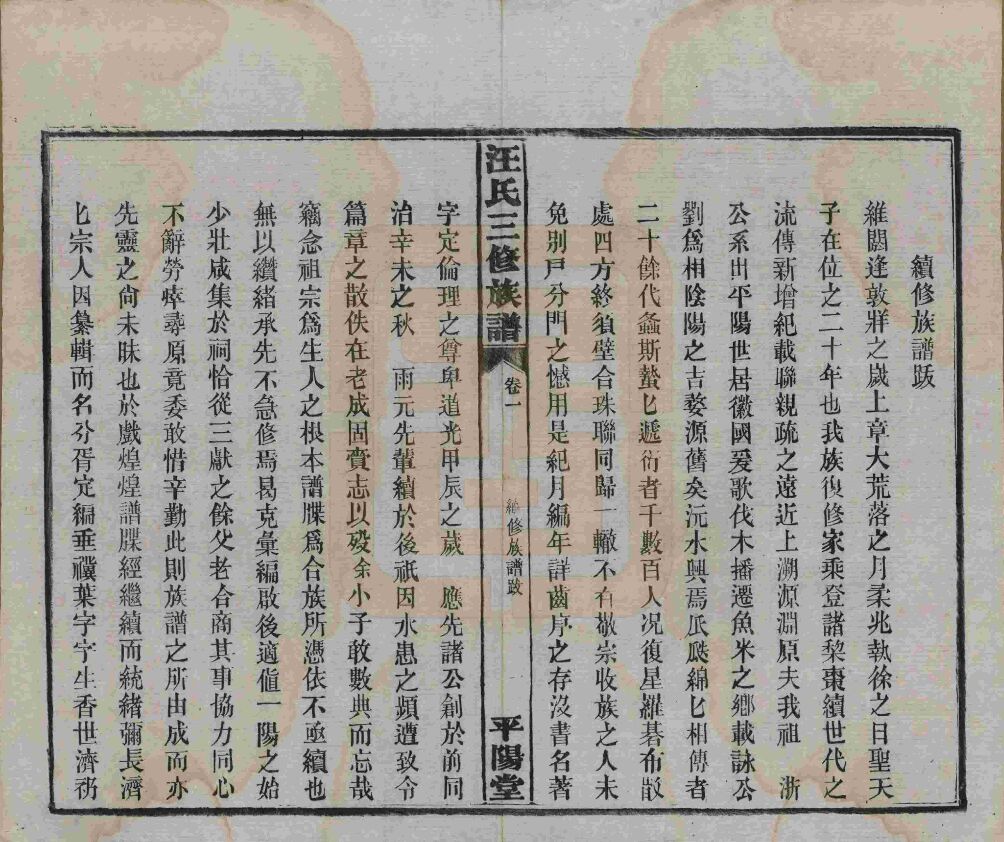 續修族譜跋
維閼逢敦牂之歲上章大荒落之月柔兆執徐之日聖天
子在位之二十年也我族復修家乘登諸梨棗續世代之
流傳新增紀載聯親疏之遠近上溯源淵原夫我祖 浙
公系出平陽世居徽國爰歌伐木播遷魚米之鄉載詠公
劉爲相陰陽之吉婺源舊矣沅水興焉瓜瓞綿匕相傳者
二十餘代螽斯蟄匕遞衍者千數百人况復星羅碁布散
處四方終須璧合珠聯同歸一轍不有敬宗收族之人未
免别戸分門之憾用是紀月編年詳齒序之存沒書名著
汪氏三修族譜
卷一
續修族譜跋
平陽堂
字定倫理之尊卑道光甲辰之歲 應先諸公創於前同
治辛未之秋 雨元先輩續於後祇因水患之頻遭致令
篇章之散佚在老成固賫志以殁余小子敢數典而忘哉
竊念祖宗爲生人之根本譜牒爲合族所憑依不亟續也
無以纘緒承先不急修焉曷克彙編啟後適值一陽之始
少壯咸集於祠恰從三獻之餘父老合商其事協力同心
不辭勞瘁尋原竟委敢惜辛勤此則族譜之所由成而亦
先靈之尙未昧也於戲煌煌譜牒經繼續而統緒彌長濟
匕宗人因纂輯而名分胥定編垂禩葉字字生香世濟礽